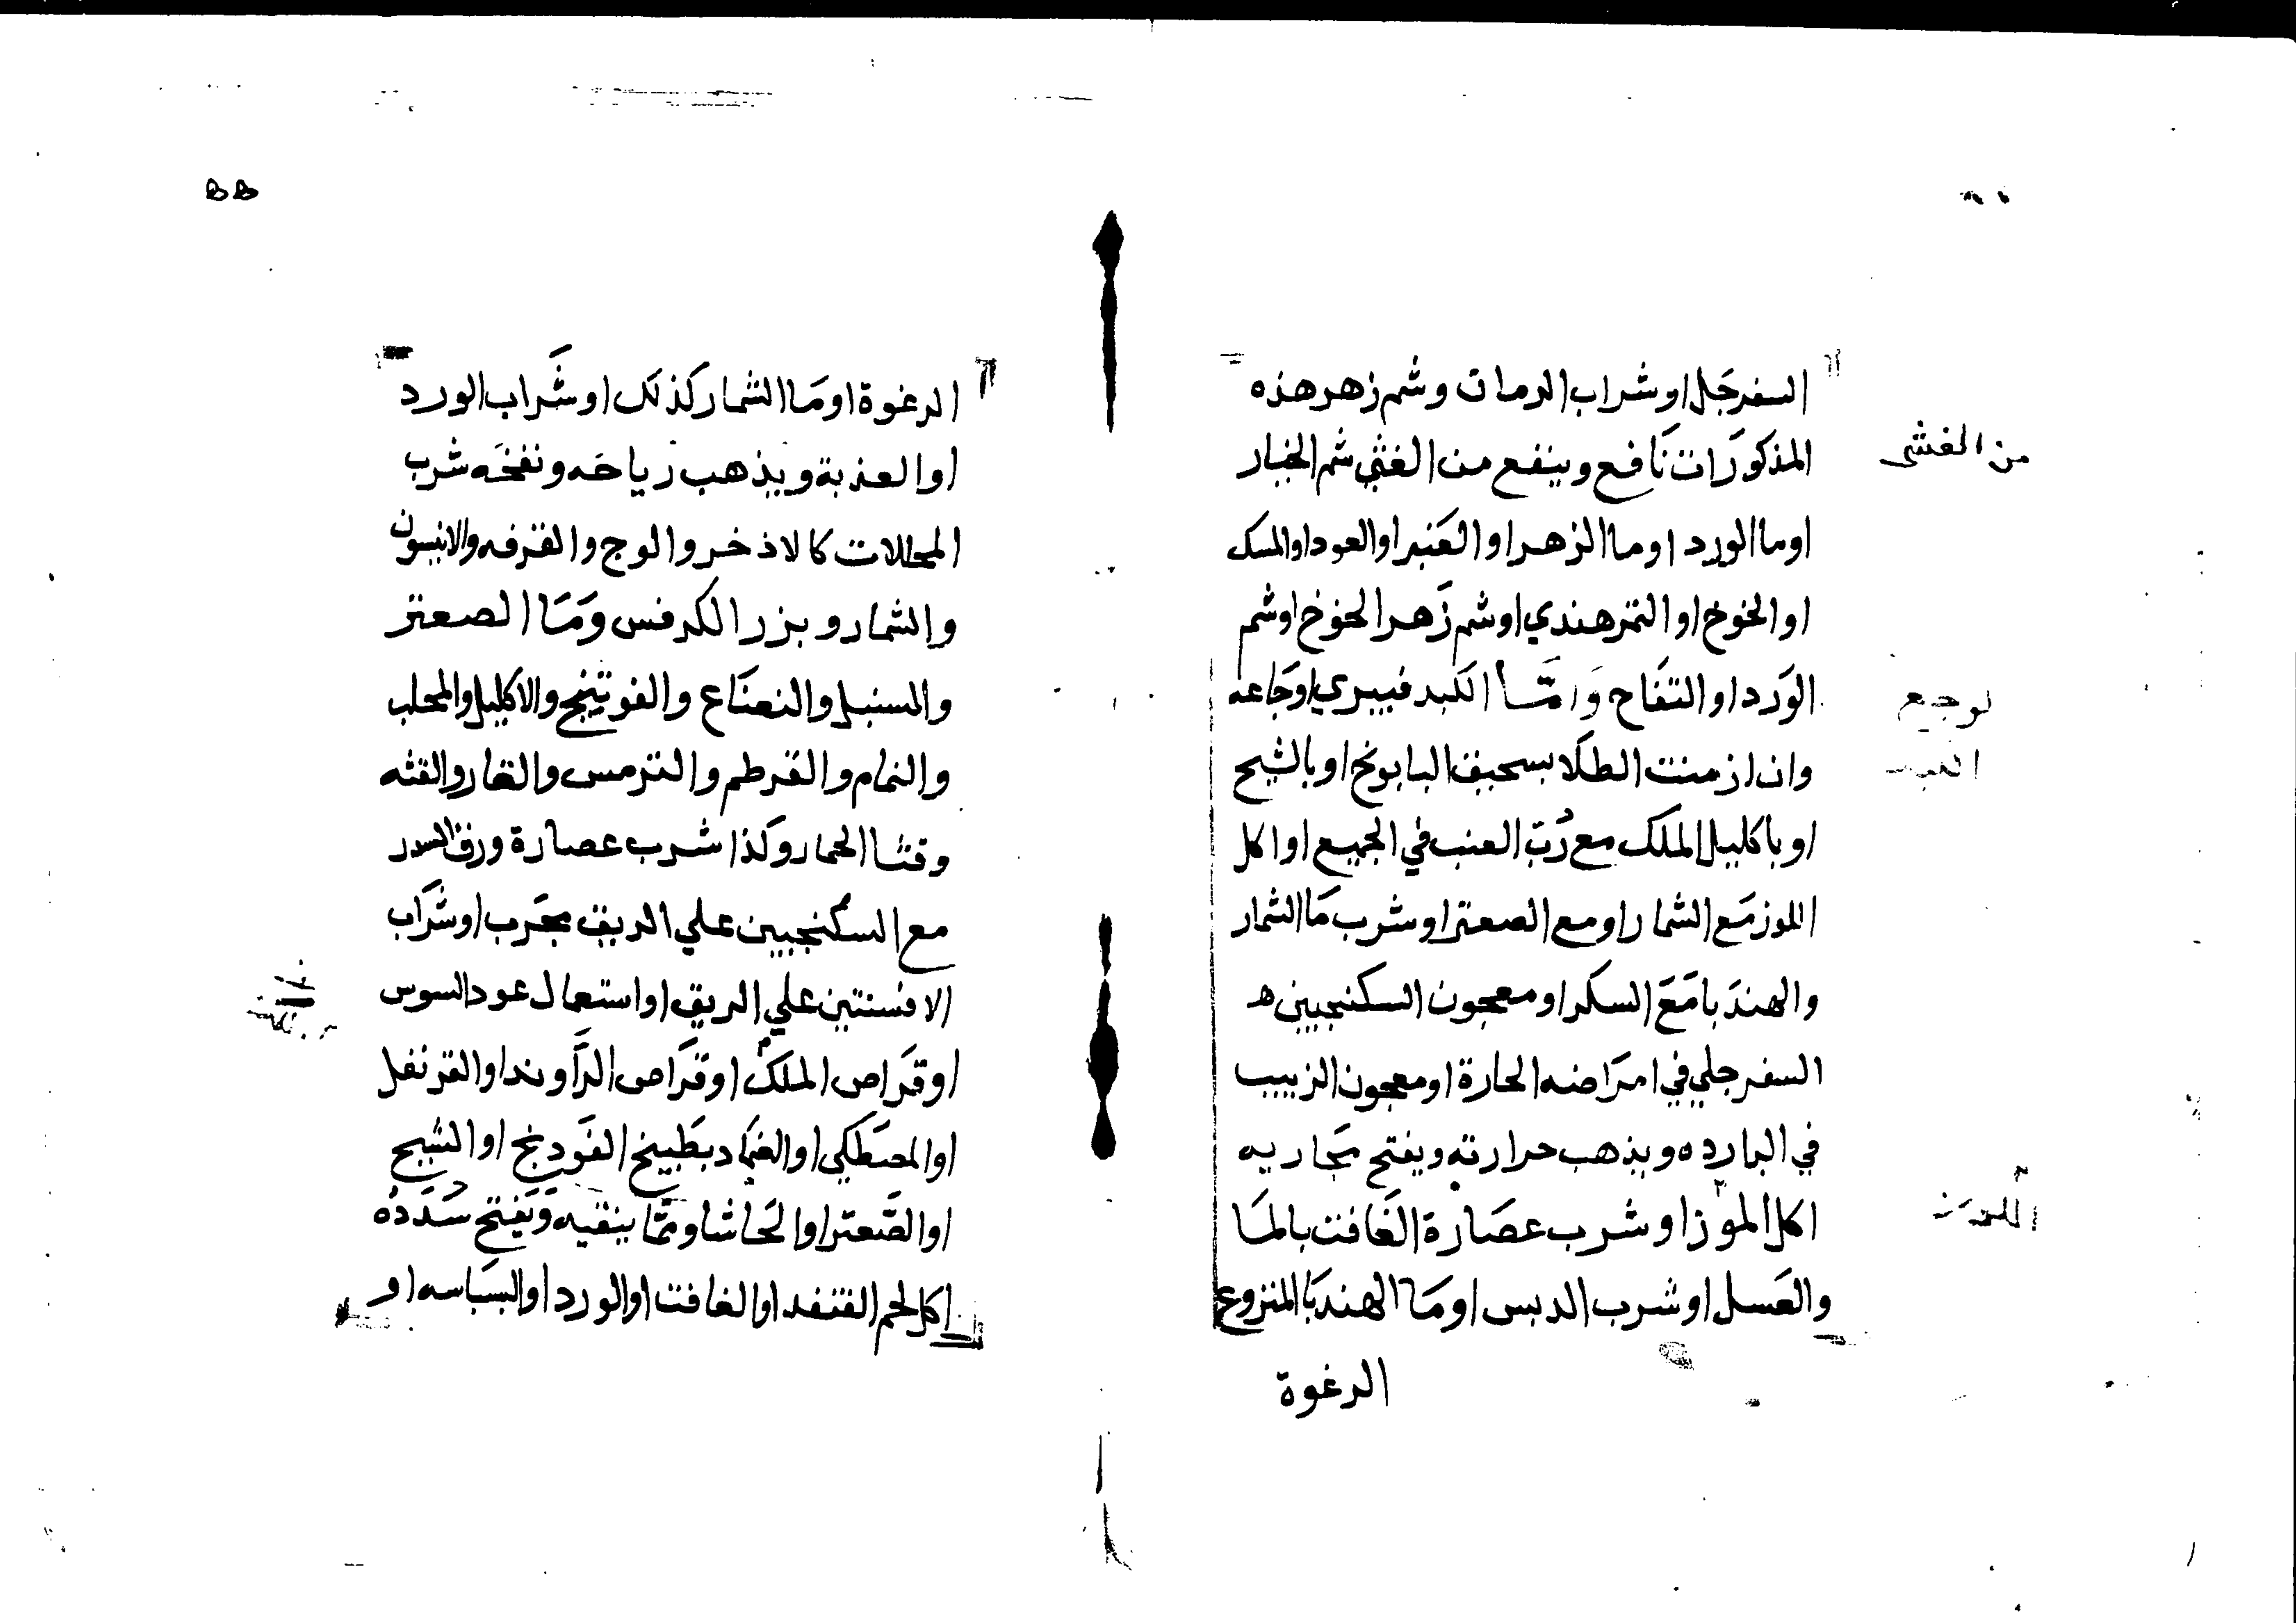 السفرجَل او شراب الرمان وشم زهر هذه
المذكورَات نَافع وينفع من الغثي شم الخيار
من الغشى
او ما الورد او ما الزهر او العَنبر او العود او المسك
او الخوخ او التمر هندي او شم زَهر الخوخ او شم
الوَرد او التفَاح وَامَّا الكبد فيبري اوجَاعه
لوجع
وان ازمنت الطلَا بسحيق البابونج او بالشيح
او باكليل الملك مع رُبّ العنب في الجميع او اكل
الموز مَع الشمار او مع الصعتر او شرب مَا الشمار
والهندَبا مَعَ السكر او معجون السكنجبين ه
السفرجلي في امرَاضه الحارة او معجون الزبيب
في البارده ويذهب حرارته ويفتح مجَاريه
اكل الموز او شرب عصَارة الغَافت بالمَا
والعَسل او شرب الدبس او مَا الهندبَا المنزوع
الرغوة
٥٥
الرغوة او مَا الشمار كذلك او شَراب الورد
او العذبة ويذهب رياحَه ونفخَه شرب
المحللات كالاذخر والوج والقرفه والانيسون
والشمار وبزر الكرفس وَمَا الصعتر
والسنبل والنعنَاع والفوتينج والاكليل والمحلب
والنمام والقرطم والترمس والغار والقثه
وقثا الحمار وكَذا شرب عصارة ورق السدر
مع السكنجبين علي الريق مجَرب او شَراب
الافسنتين علي الريق او استعمال عود السوس
او قرَاص الملك او قرَاص الرَاوند او القرنفل
او المصطَكي او الضمَاد بطَبيخ الفَودنج او الشيح
او الصَعتر او الحَاشا وممَّا ينقيه وَيفتح سُدَدُه
اكل لحم القنفد او الغافت او الورد او البسبَاسه او